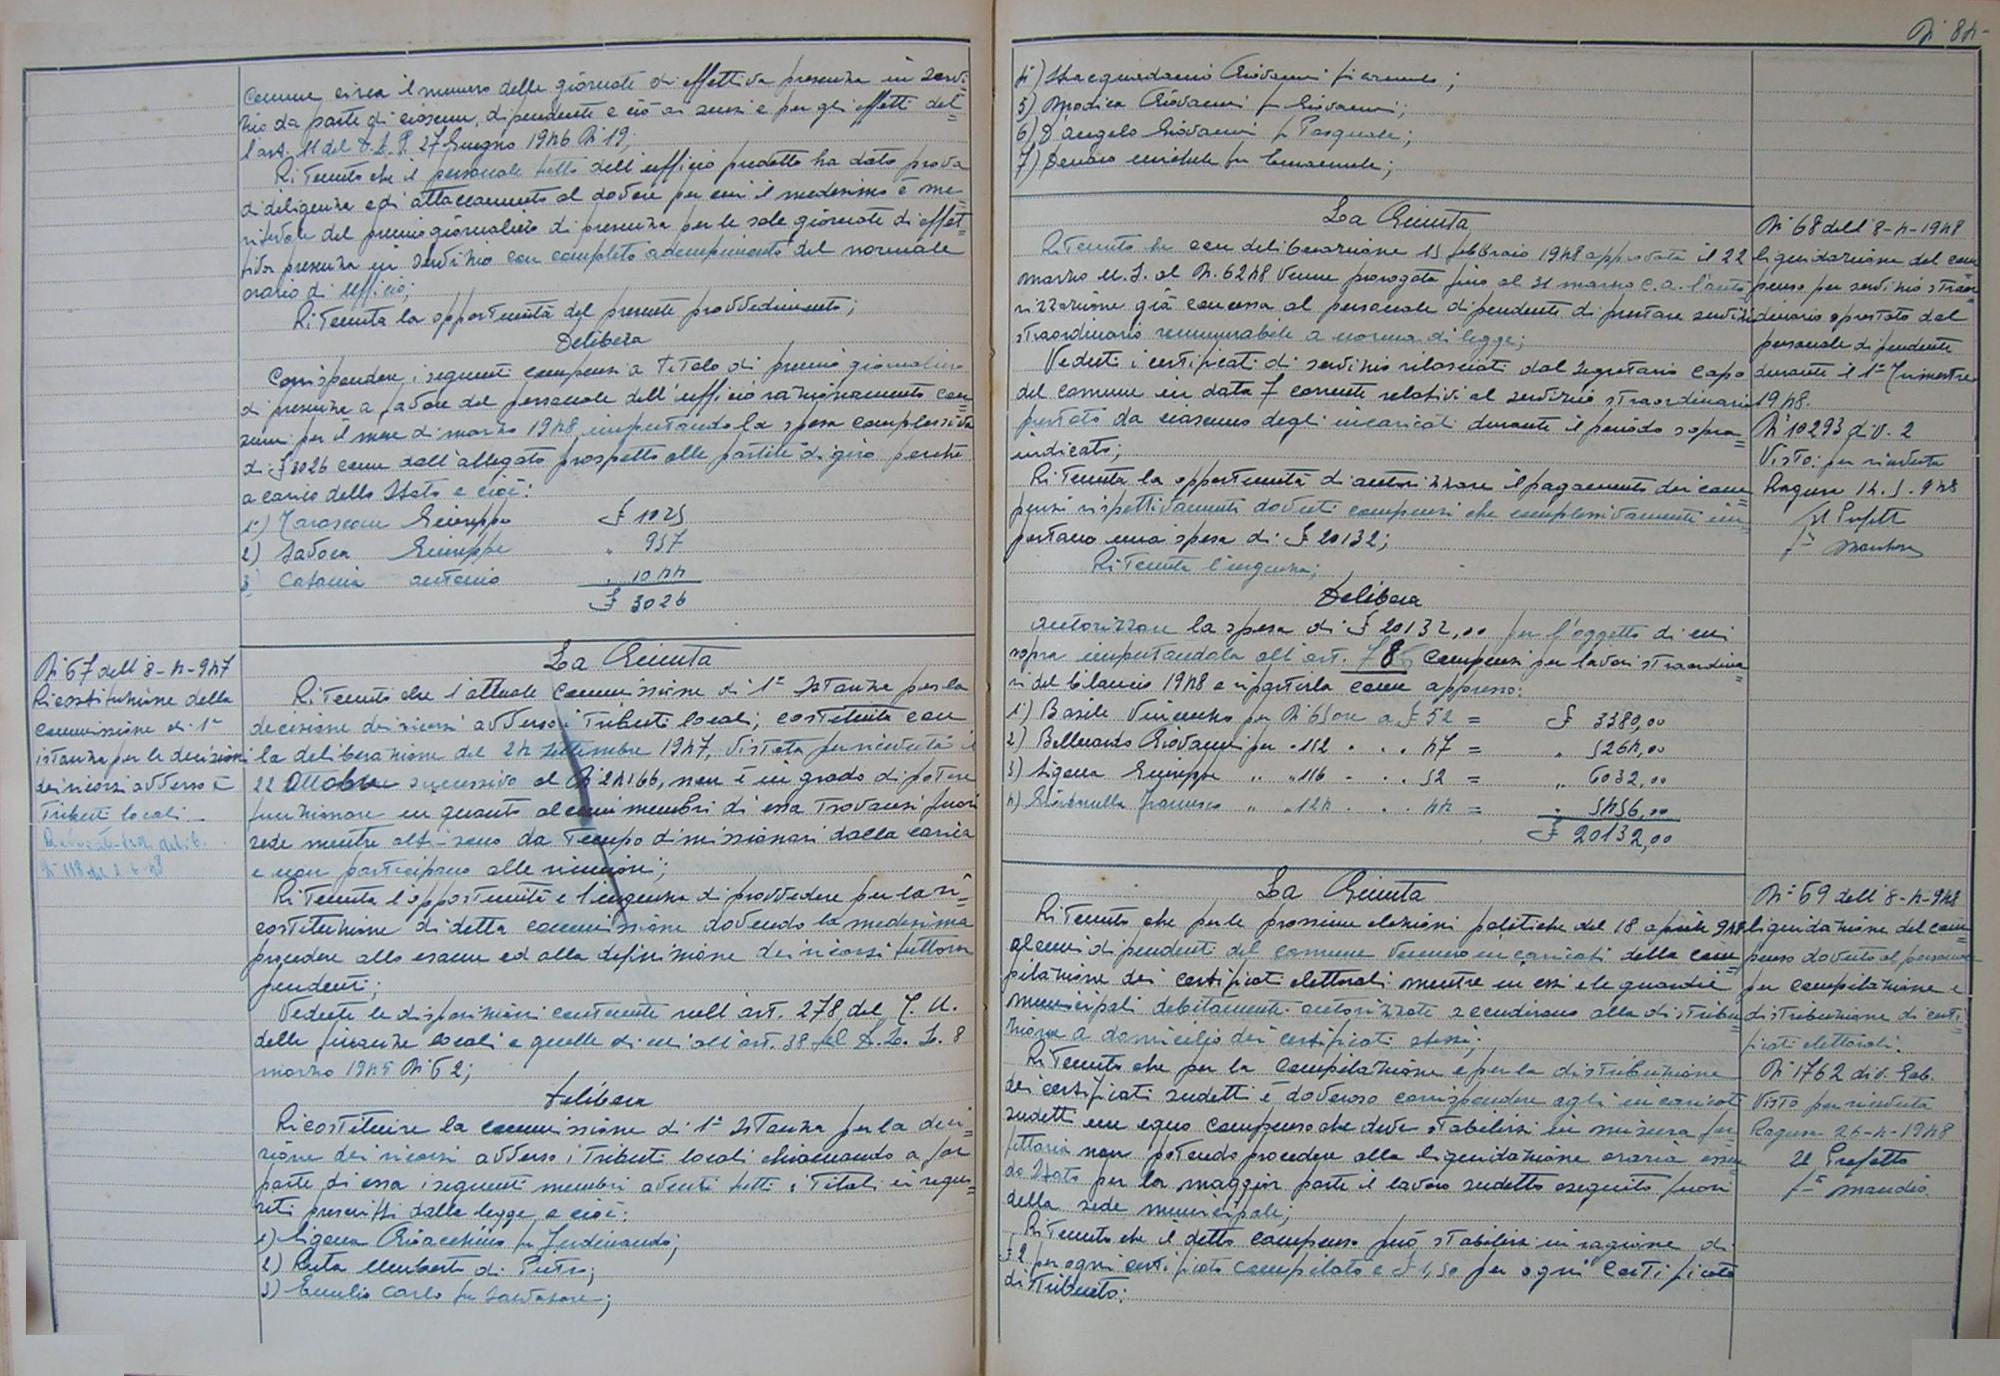 comune, circa il numero delle giornate di effettiva presenza in servi=
zio da parte di ciascun dipendente e ciò ai sensi e per gli effetti del=
l'art. 11 del D.L.P. 27 Giugno 1946 N° 19;
Ritenuto che il personale tutto dell'ufficio predetto ha dato prova
di diligenza e di attaccamento al dovere per cui il medesimo è me=
ritevole del premio giornaliero di presenza per le sole giornate di effet=
tiva presenza in servizio con completo adempimento del normale
orario di ufficio;
Ritenuta la opportunità del presente provvedimento;
Delibera
Corrispondere i seguenti compensi a titolo di premio giornaliero
di presenza a favore del personale dell'ufficio razionamento con=
sumi per il mese di marzo 1948, imputando la spesa complessiva
di £ 3026 come dall'allegato prospetto alle partite di giro perché
a carico dello Stato e cioè:
1°) Giuseppe £ 1025
2) Savoca Giuseppe " 957
3) Catania Antonio " 1044
£ 3026
N° 67 dell'8-4-947
Ricostituzione della
commissione di 1ª
istanza per le decisioni
dei ricorsi avverso i
tributi locali
La Giunta
Ritenuto che l'attuale commissione di 1ª Istanza per la
decisione dei ricorsi avverso i tributi locali, costituita con
la deliberazione del 24 settembre 1947, vistata per ricevuta il
22 Ottobre successivo al N° 24166, non è in grado di potere
funzionare in quanto alcuni membri di essa trovansi fuori
sede mentre altri sono da tempo dimissionari dalla carica
e non partecipano alle riunioni;
Ritenuta l'opportunità e l'urgenza di provvedere per la ri=
costituzione di detta commissione dovendo la medesima
procedere allo esame ed alla definizione dei ricorsi tuttora
pendenti;
Vedute le disposizioni contenute nell'art. 278 del T. U.
delle finanze locali e quelle di cui all'art. 38 del D. L. L. 8
marzo 1945 N° 62;
Delibera
Ricostituire la commissione di 1ª Istanza per la deci=
sione dei ricorsi avverso i tributi locali chiamando a far
parte di essa i seguenti membri aventi tutti i titoli ei requi=
siti prescritti dalla legge e cioè:
1) Ligena Gioacchino fu Ferdinando;
2) Ruta Umberto di Pietro;
3) Emilio Carlo fu Salvatore;
N° 84-
4) Giovanni fu
5) Modica Giovanni fu Giovanni;
6) D'Angelo Giovanni fu Pasquale;
7) Denaro Michele fu Emanuele;
La Giunta
Ritenuto che con deliberazione 15 febbraio 1948 approvata il 22
marzo u. s. al N. 6248 venne prorogata fino al 31 marzo c. a. l'auto
rizzazione già concessa al personale dipendente di prestare servizi
straordinario remunerabile a norma di legge;
Veduti i certificati di servizio rilasciati dal Segretario Capo
del comune in data 7 corrente relativi al servizio straordinario
prestato da ciascuno degli incaricati durante il periodo sopra=
indicato;
Ritenuta la opportunità di autorizzare il pagamento dei com=
pensi rispettivamente dovuti compensi che complessivamente im=
portano una spesa di £ 20132;
Ritenuta l'urgenza;
Delibera
Autorizzare la spesa di £ 20132,00 per l'oggetto di cui
sopra imputandola all'art. 78 compensi per lavori straordina=
ri del bilancio 1948 e ripartirla come appresso:
1°) Basile Vincenzo per N° 65 ore a £ 52 = £ 3380,00
2) Belluardo Giovanni per " 112 " " 47 = " 5264,00
3) Ligena Giuseppe " " 116 " " 52 = " 6032,00
4) Francesco " " 124 " " 44 = " 5456,00
£ 20132,00
N° 68 dell'8-4-1948
liquidazione del com
penso per servizio straor=
dinario prestato dal
personale dipendente
durante il 1° Trimestre
1948.
N° 10293 div. 2
Visto: per ricevuta
Ragusa 14.5.948
Il Prefetto
La Giunta
Ritenuto che per le prossime elezioni politiche del 18 aprile 948
alcuni dipendenti del comune vennero incaricati della com
pilazione dei certificati elettorali mentre in essi e le guardie
municipali debitamente autorizzate accudirono alla distribu
zione a domicilio dei certificati stessi;
Ritenuto che per la compilazione e per la distribuzione
dei certificati sudetti è doveroso corrispondere agli incaricati
sudetti un equo compenso che deve stabilirsi in misura for
fettaria non potendo procedere alla liquidazione oraria essen
do stato per la maggior parte il lavoro sudetto eseguito fuori
della sede municipale;
Ritenuto che il detto compenso può stabilirsi in ragione di
£ 2 per ogni certificato compilato e £ 1,50 per ogni certificato
distribuito:
N° 69 dell'8-4-948
liquidazione del com=
penso dovuto al personale
per compilazione e
distribuzione di certi
ficati elettorali.
N° 1762 div. Gab.
Visto per ricevuta
Ragusa 26-4-1948
Il Prefetto